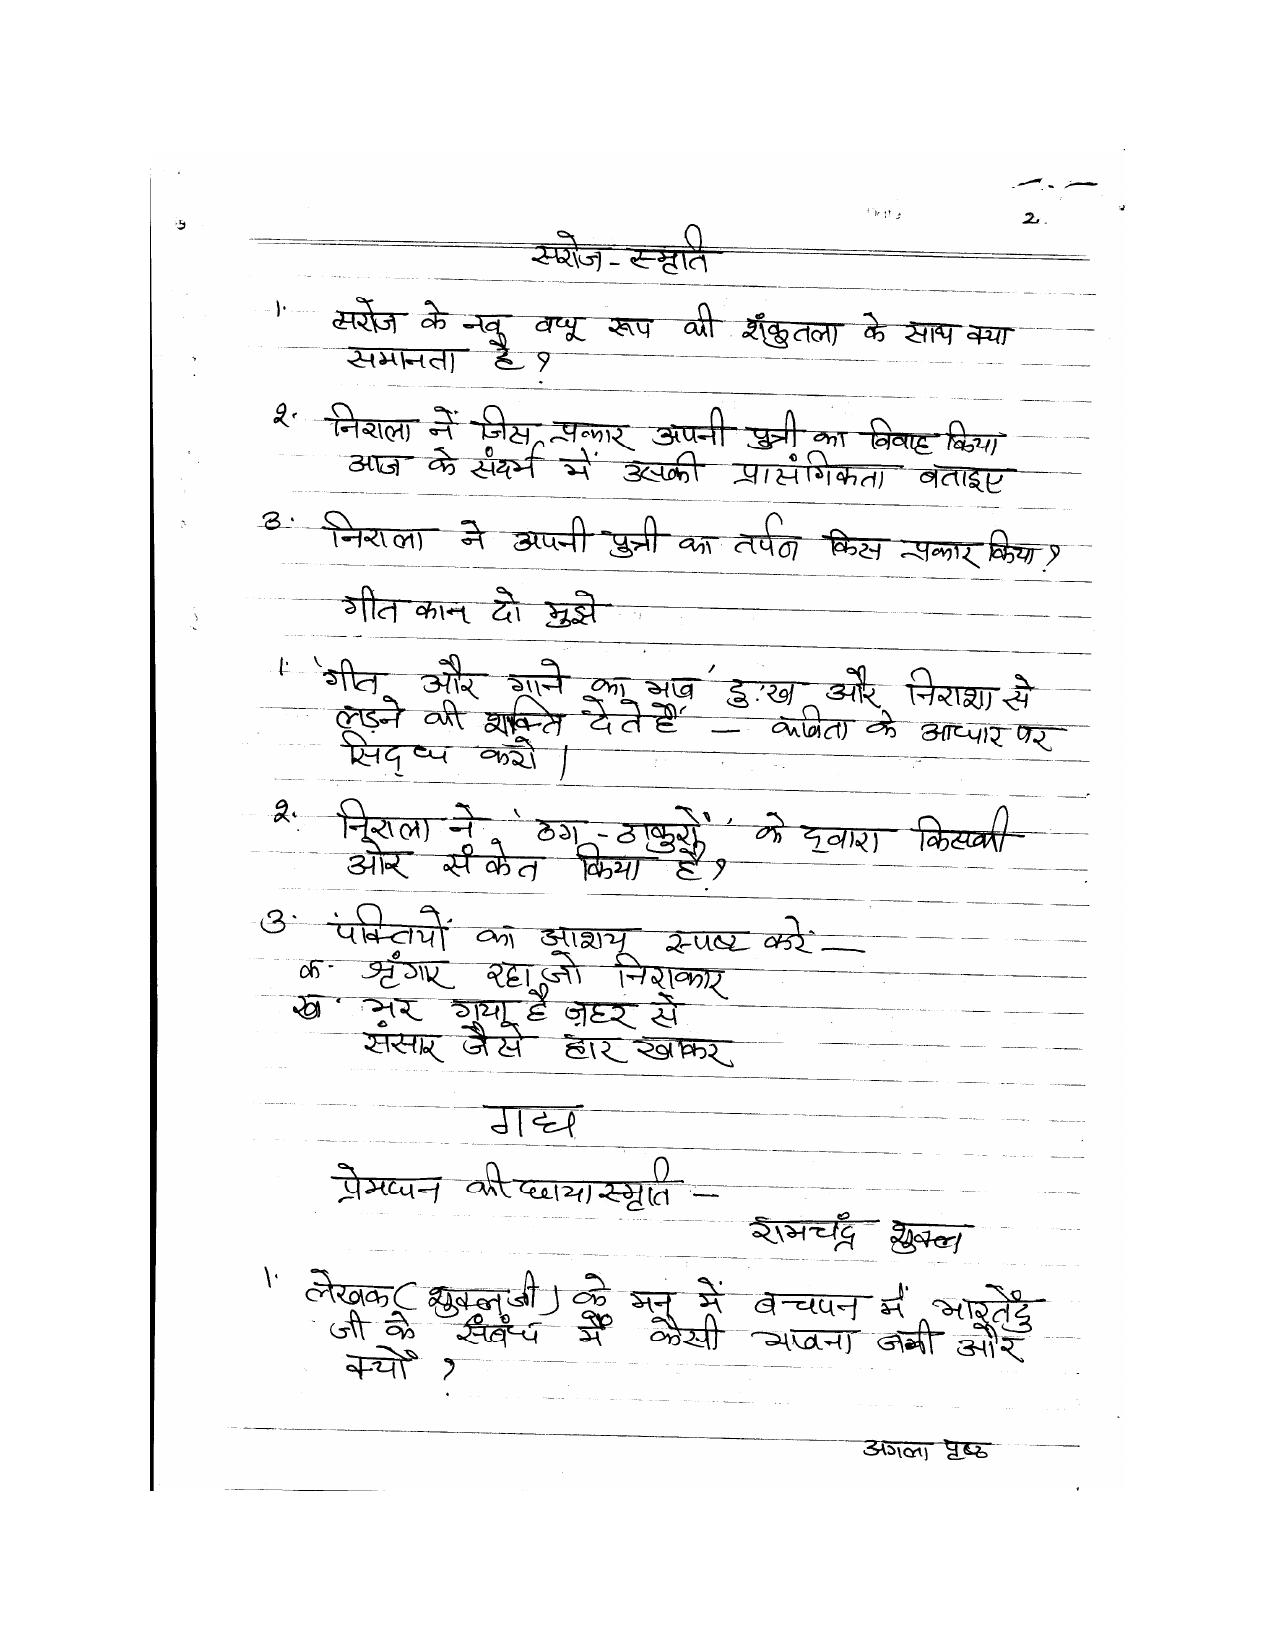 2.
सरोज - स्मृति
1. सरोज के नव वधू रूप की शंकुतला के साथ क्या
समानता है ?
2. निराला नें जिस प्रकार अपनी पुत्री का विवाह किया
आज के संदर्भ में उसकी प्रासंगिकता बताइए
3. निराला ने अपनी पुत्री का तर्पण किस प्रकार किया ?
गीत कान दो मुझे
1. 'गीत और गाने का भाव' दुःख और निराशा से
लड़ने की शक्ति देते हैं' – कविता के आधार पर
सिद्ध करो |
2. निराला ने 'ठग - ठाकुरों' के द्वारा किसकी
ओर संकेत किया है ?
3. पंक्तियों का आशय स्पष्ट करें –
क. श्रृंगार रहा जो निराकार
ख. भर गया है ज़हर से
संसार जैसे हार खाकर
गद्य
प्रेमघन की छाया स्मृति –
रामचंद्र शुक्ल
1. लेखक ( शुक्ल जी ) के मन में बचपन में भारतेंदु
जी के संबंध में कैसी भावना जगी और
क्यों ?
अगला पृष्ठ